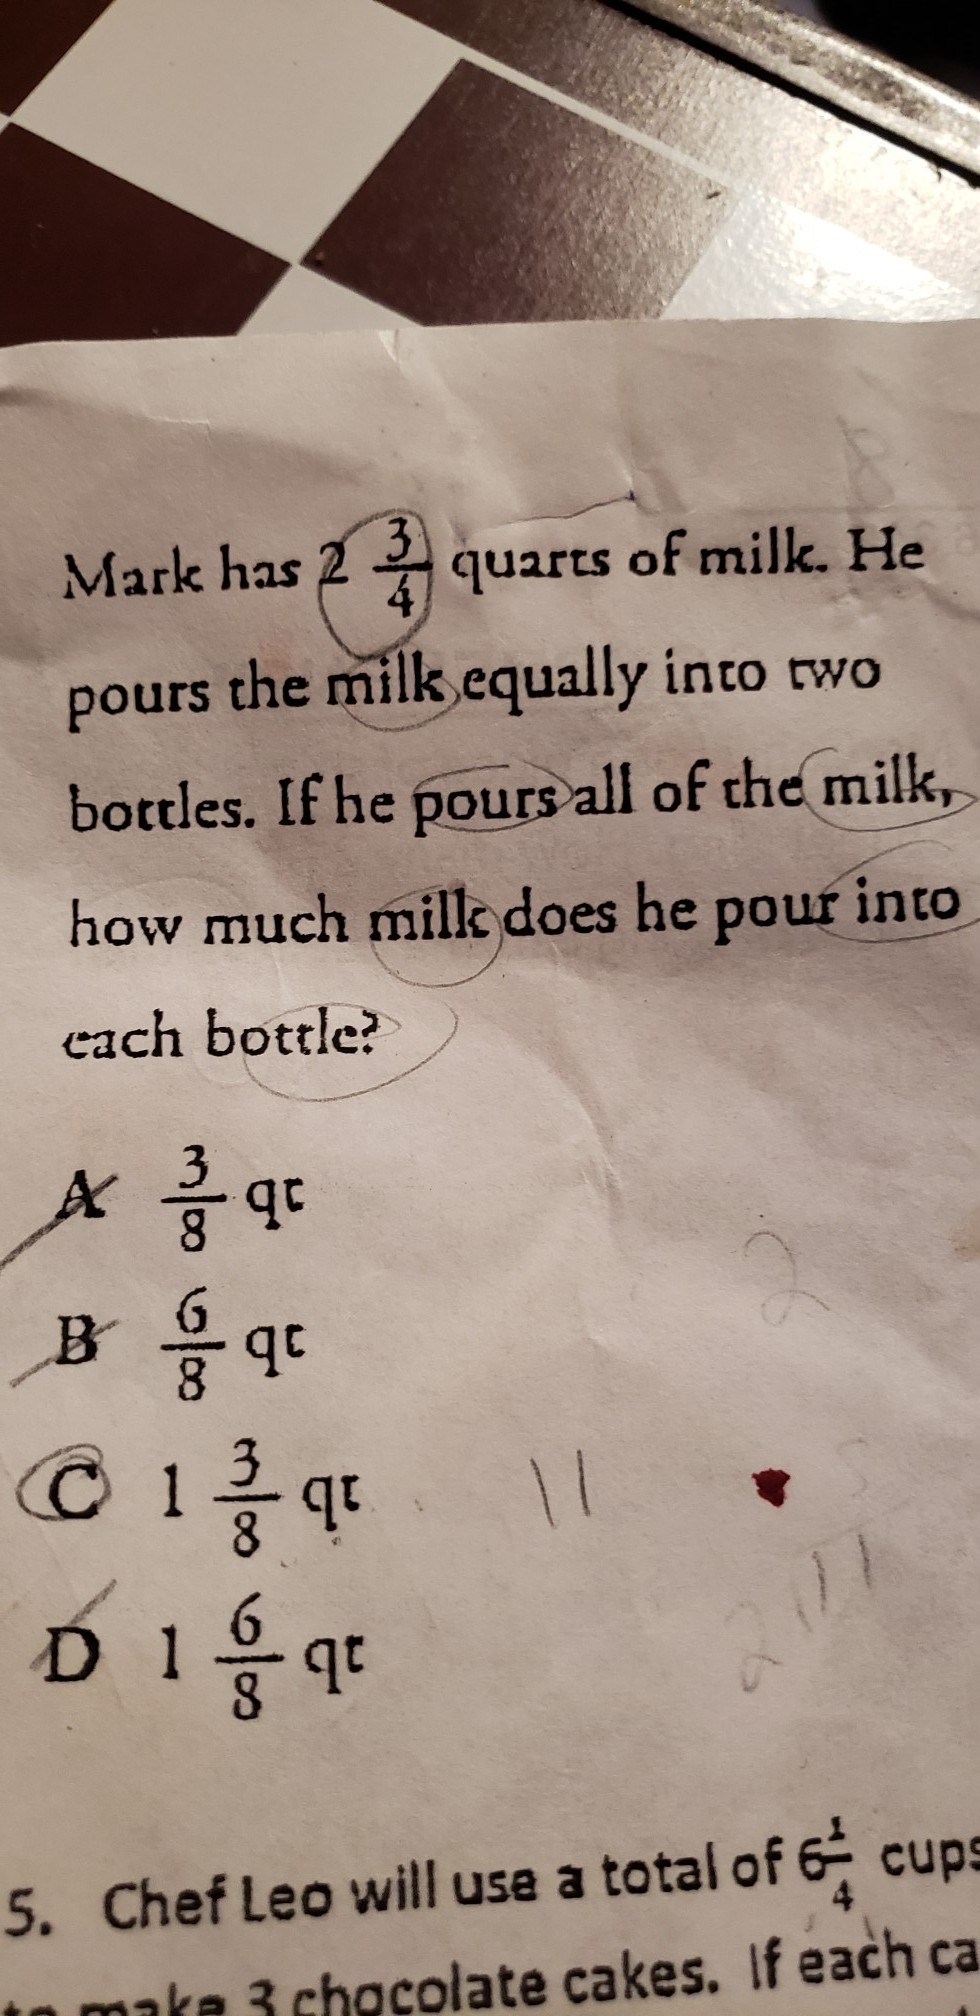 Mark has 2 3/4 quarts of milk. He
pours the milk equally into two
bottles. If he pours all of the milk,
how much milk does he pour into
each bottle?
A 3/8 qt
B 6/8 qt
2
C 1 3/8 qt 11
11
D 1 6/8 qt 2
5. Chef Leo will use a total of 6 1/4 cups
make 3 chocolate cakes. If each ca